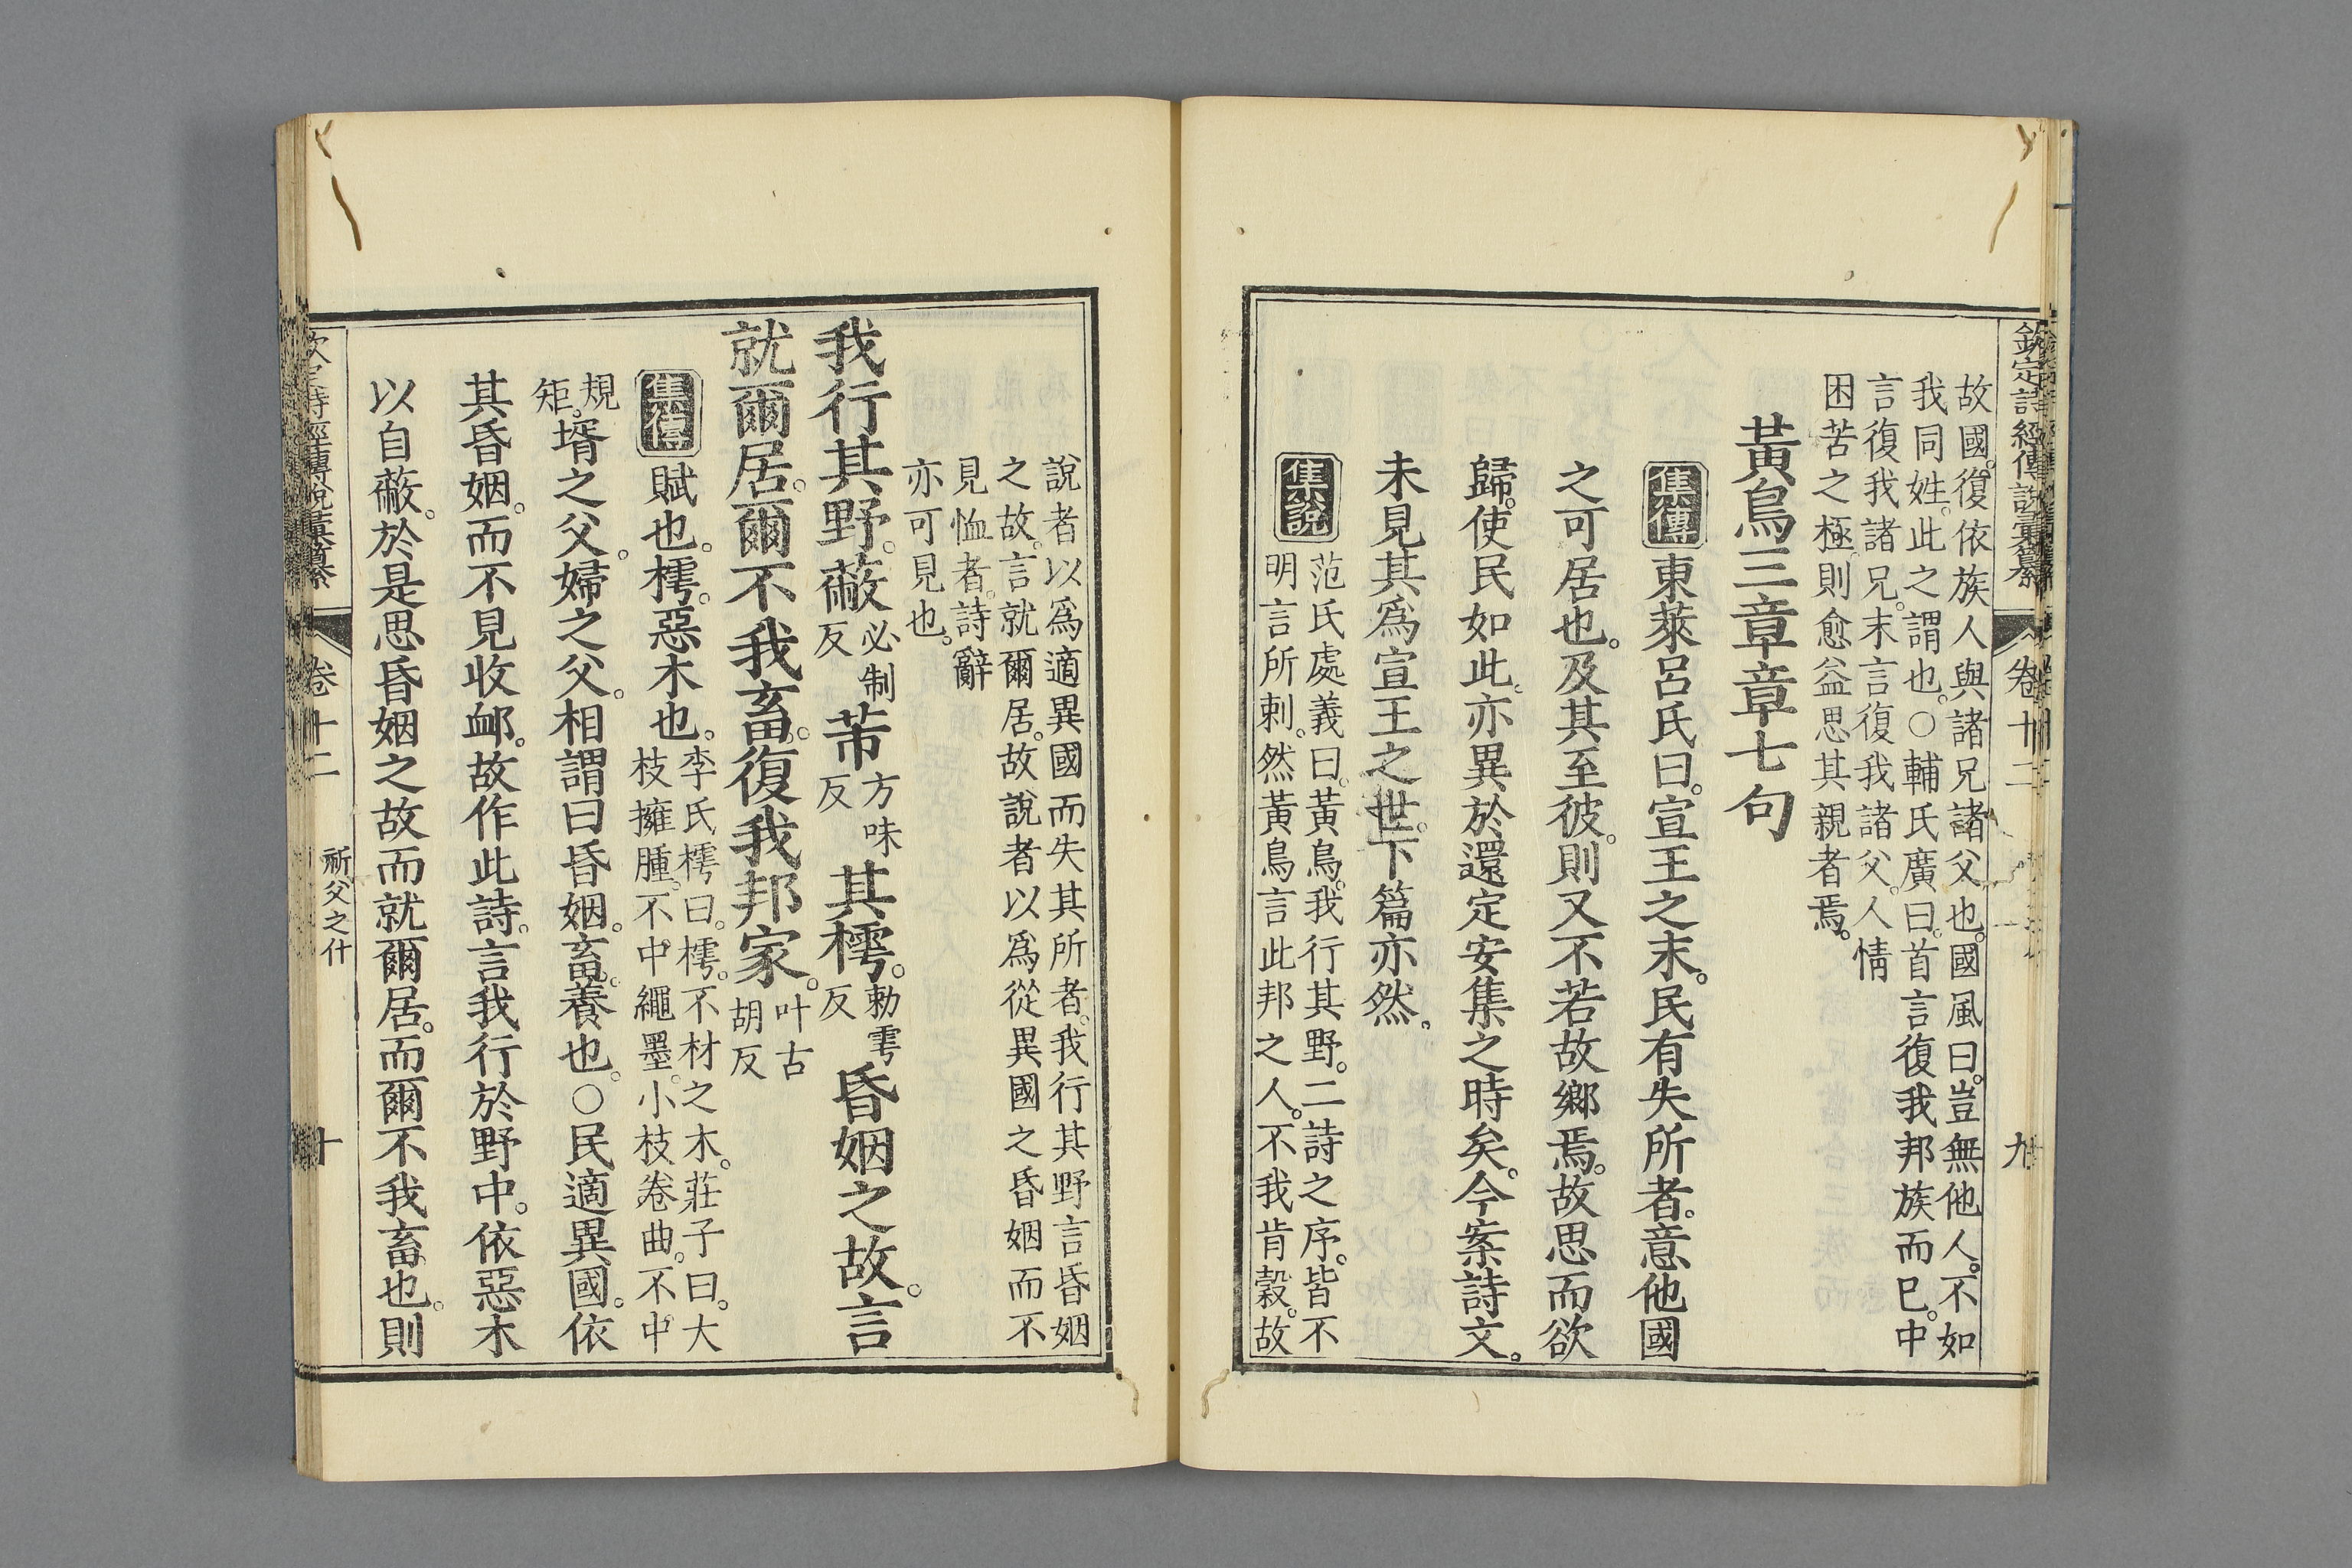 欽定詩經傳說彙纂 卷十二 九
故國。復依族人與諸兄諸父也。國風曰。豈無他人。不如
我同姓。此之謂也。○輔氏廣曰。首言復我邦族而已。中
言復我諸兄。末言復我諸父。人情
困苦之極。則愈益思其親者焉。
黃鳥三章章七句
集傳 東萊呂氏曰。宣王之末。民有失所者。意他國
之可居也。及其至彼。則又不若故鄉焉。故思而欲
歸。使民如此。亦異於還定安集之時矣。今案詩文。
未見其爲宣王之世。下篇亦然。
集說 范氏處義曰。黃鳥。我行其野。二詩之序。皆不
明言所刺。然黃鳥言此邦之人。不我肯穀。故
說者以爲適異國而失其所者。我行其野言昏姻
之故。言就爾居。故說者以爲從異國之昏姻而不
見恤者。詩辭
亦可見也。
我行其野。蔽必制反芾方味反其樗。勑雩反昏姻之故。言
就爾居。爾不我畜。復我邦家。叶古胡反
集傳 賦也。樗。惡木也。李氏樗曰。樗。不材之木。莊子曰。大
枝擁腫。不中繩墨。小枝卷曲。不中
規矩。壻之父。婦之父。相謂曰昏姻。畜。養也。○民適異國。依
其昏姻。而不見收卹。故作此詩。言我行於野中。依惡木
以自蔽。於是思昏姻之故而就爾居。而爾不我畜也。則
欽定詩經傳說彙纂 卷十二 祈父之什 十